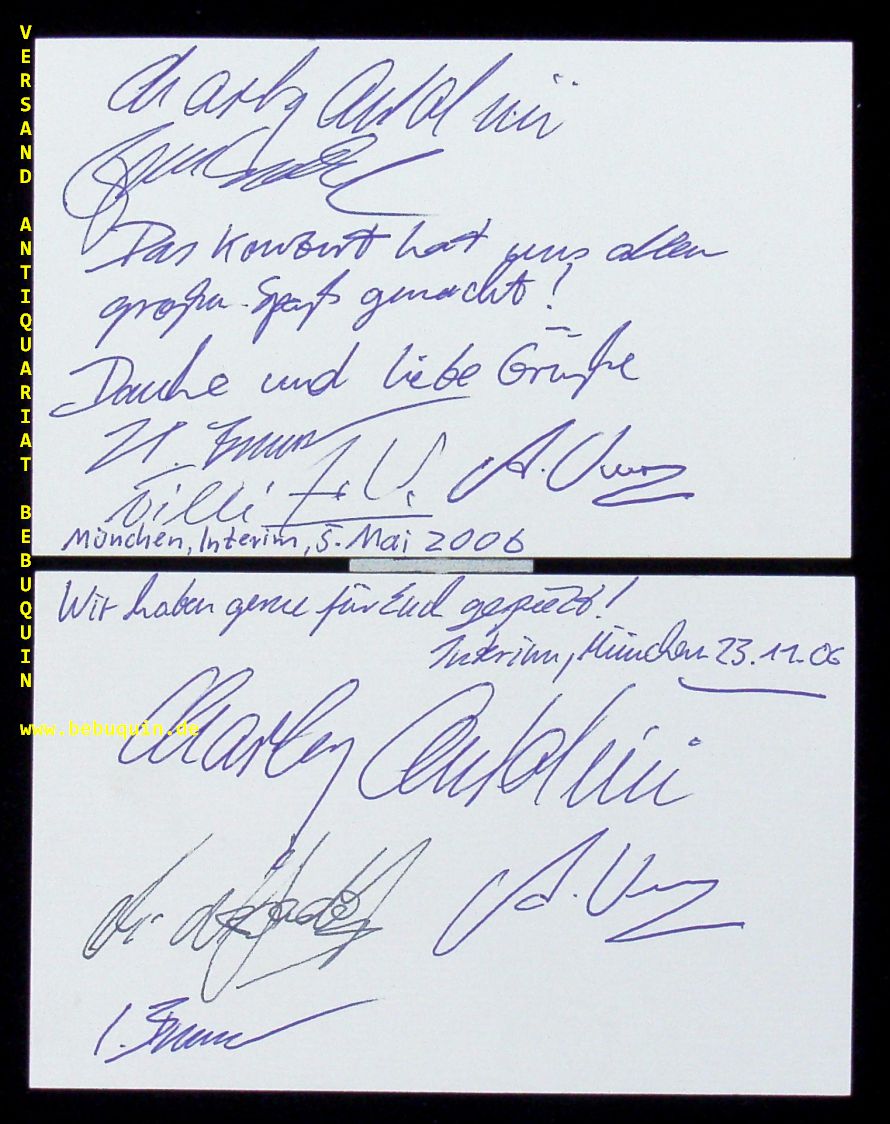 VERSAND ANTIQUARIAT BEBUQUIN
www.bebuquin.de
Charly Antolini
Das Konzert hat uns allen
großen Spaß gemacht!
Danke und liebe Grüße
Villi
A.
München, Interim, 5. Mai 2006
Wir haben gerne für Euch gespielt!
Interim, München 23.11.06
Charly Antolini
A.